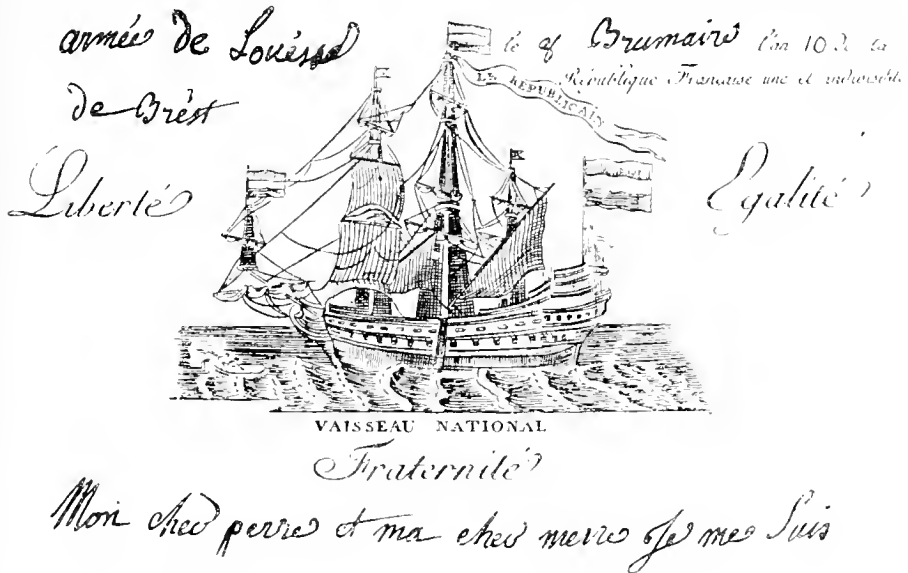 armée de Louésse le 8 Brumaire l'an 10 de la
LE RÉPUBLICAIN
République Française une et indivisible
de Brest
Liberté
Egalité
VAISSEAU NATIONAL
Fraternité
Mon cher perre et ma cher merre Je me Suis